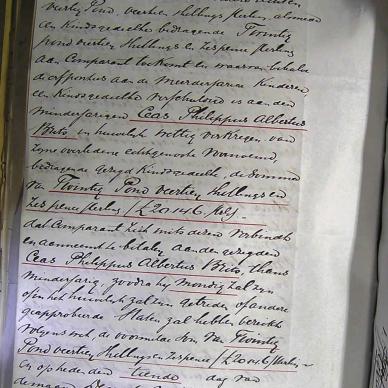 veertig Pond, veertien shillings sterling, alsmede
een Kindsgedeelte bedragende Twintig
pond veertien Shillings en zespence sterling
aan Comparant toekomt en waarvan behalve
de afgestane aan de meerderjarige kinderen
een Kindsgedeelte verschuldigd is aan den
minderjarigen Ceas Philippus Albertus
Brits, in huwelyk wettig verkregen van
zyne overledene echtgenoote voornoemd,
bedragende gezegd Kindsgedeelte, de somma
van Twintig Pond veertien shillings en
zes pence sterling / £20.14.6. Stg / -
dat Comparant zich mits dezen verbindt
en aanneemt te betalen aan den gezegden
Ceas Philippus Albertus Brits, thans
minderjarig, zoodra hy mondig zal zyn
of in het huwelyk zal zyn getreden of andere
geapprobeerde Staten zal hebben bereikt
volgens wet, de voormelde som van Twintig
Pond veertien shillings en zespence / £20.14.6 / Sterling -
en op heden den tiende dag van